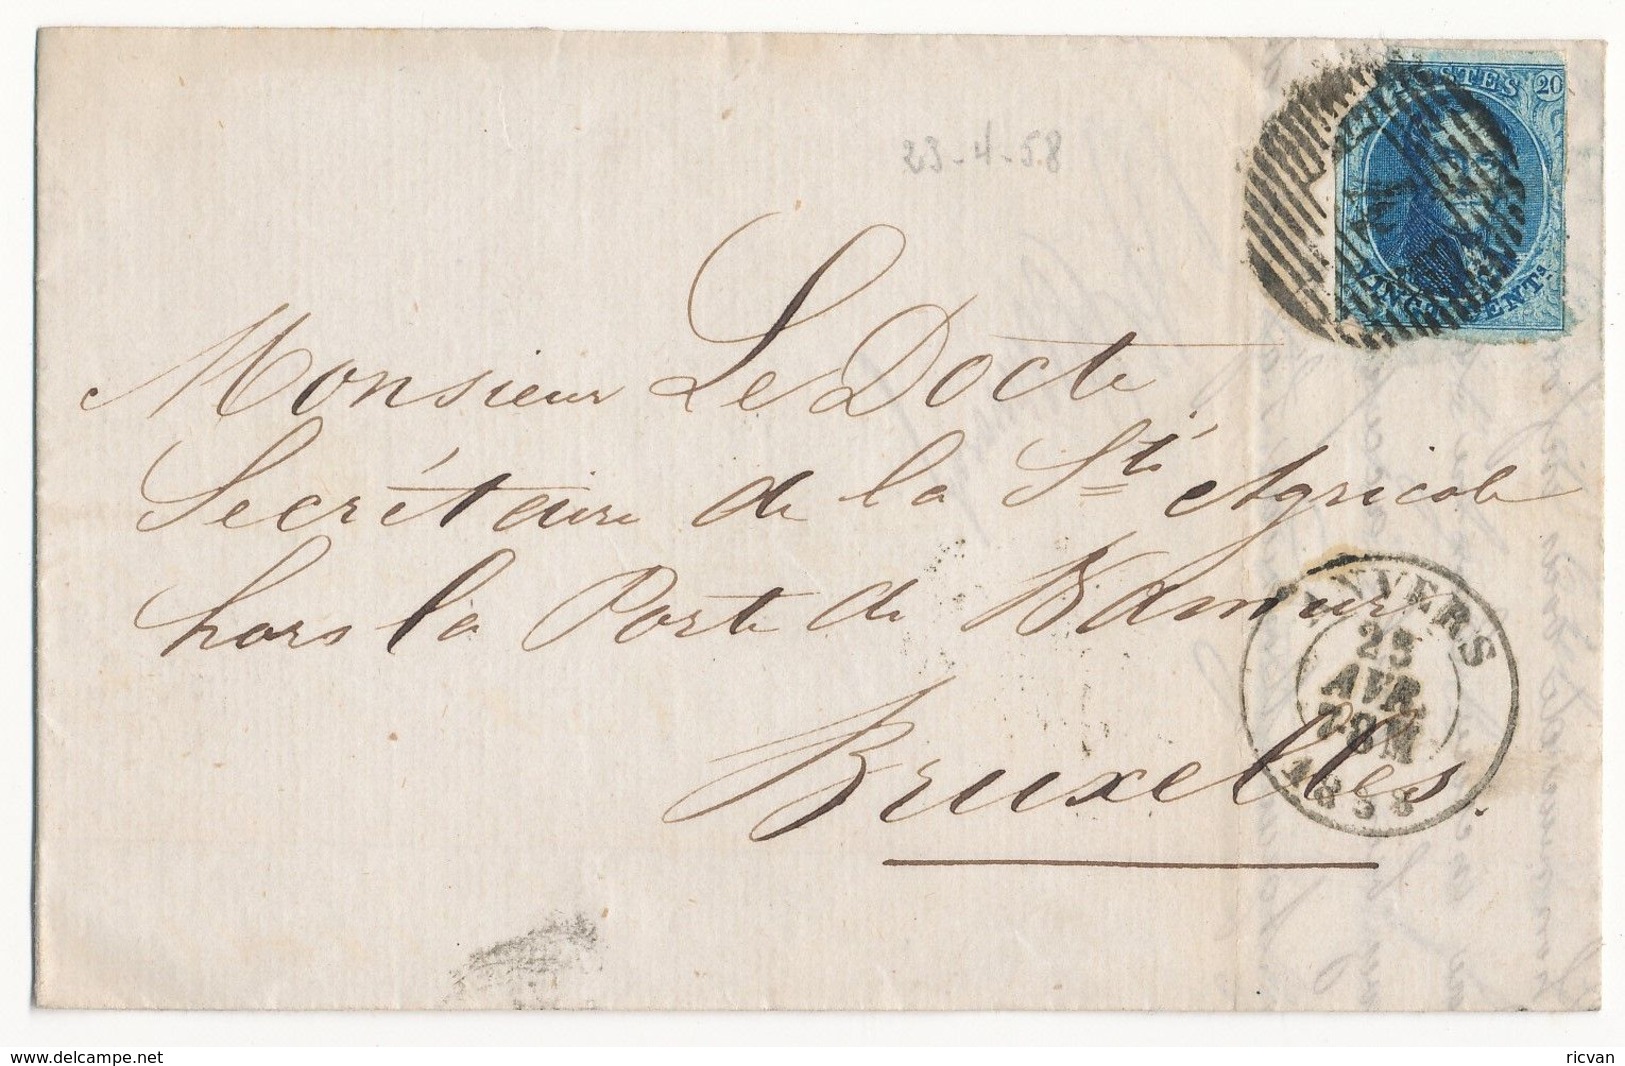 POSTES 20
VINGT CENTS
23-4-58
Monsieur Le Docte
Secrétaire de la Sté Agricole
hors la Porte de Namur
Bruxelles.
ANVERS
23
AVR.
1858
www.delcampe.net
ricvan